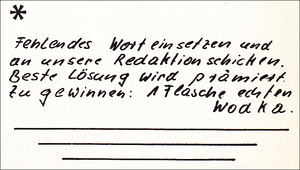 *
Fehlendes Wort einsetzen und
an unsere Redaktion schicken.
Beste Lösung wird prämiert.
Zu gewinnen: 1 Flasche echten
Wodka.